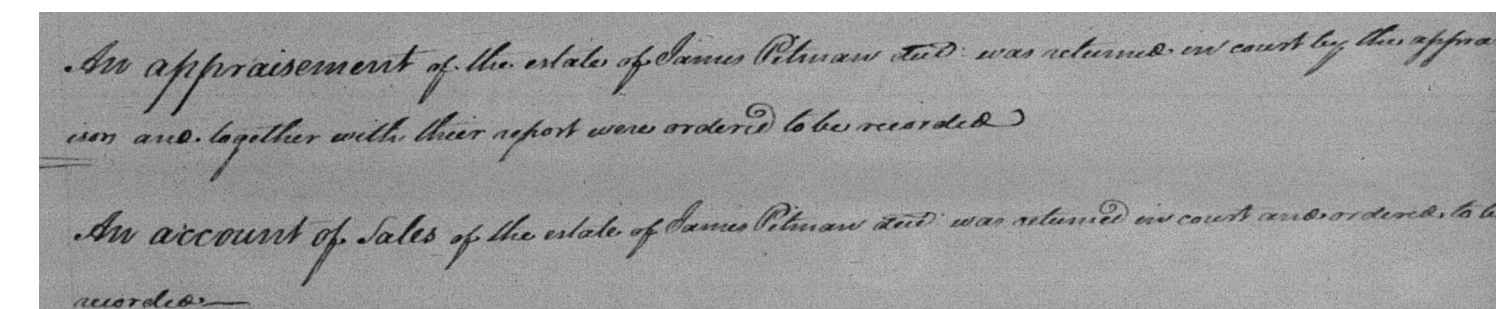 An appraisement of the estate of James Pitman decd. was returned in court by the apprai
isors and together with thier report were ordered to be recorded
An account of Sales of the estate of James Pitman decd. was returned in court and ordered to be
recorded.—